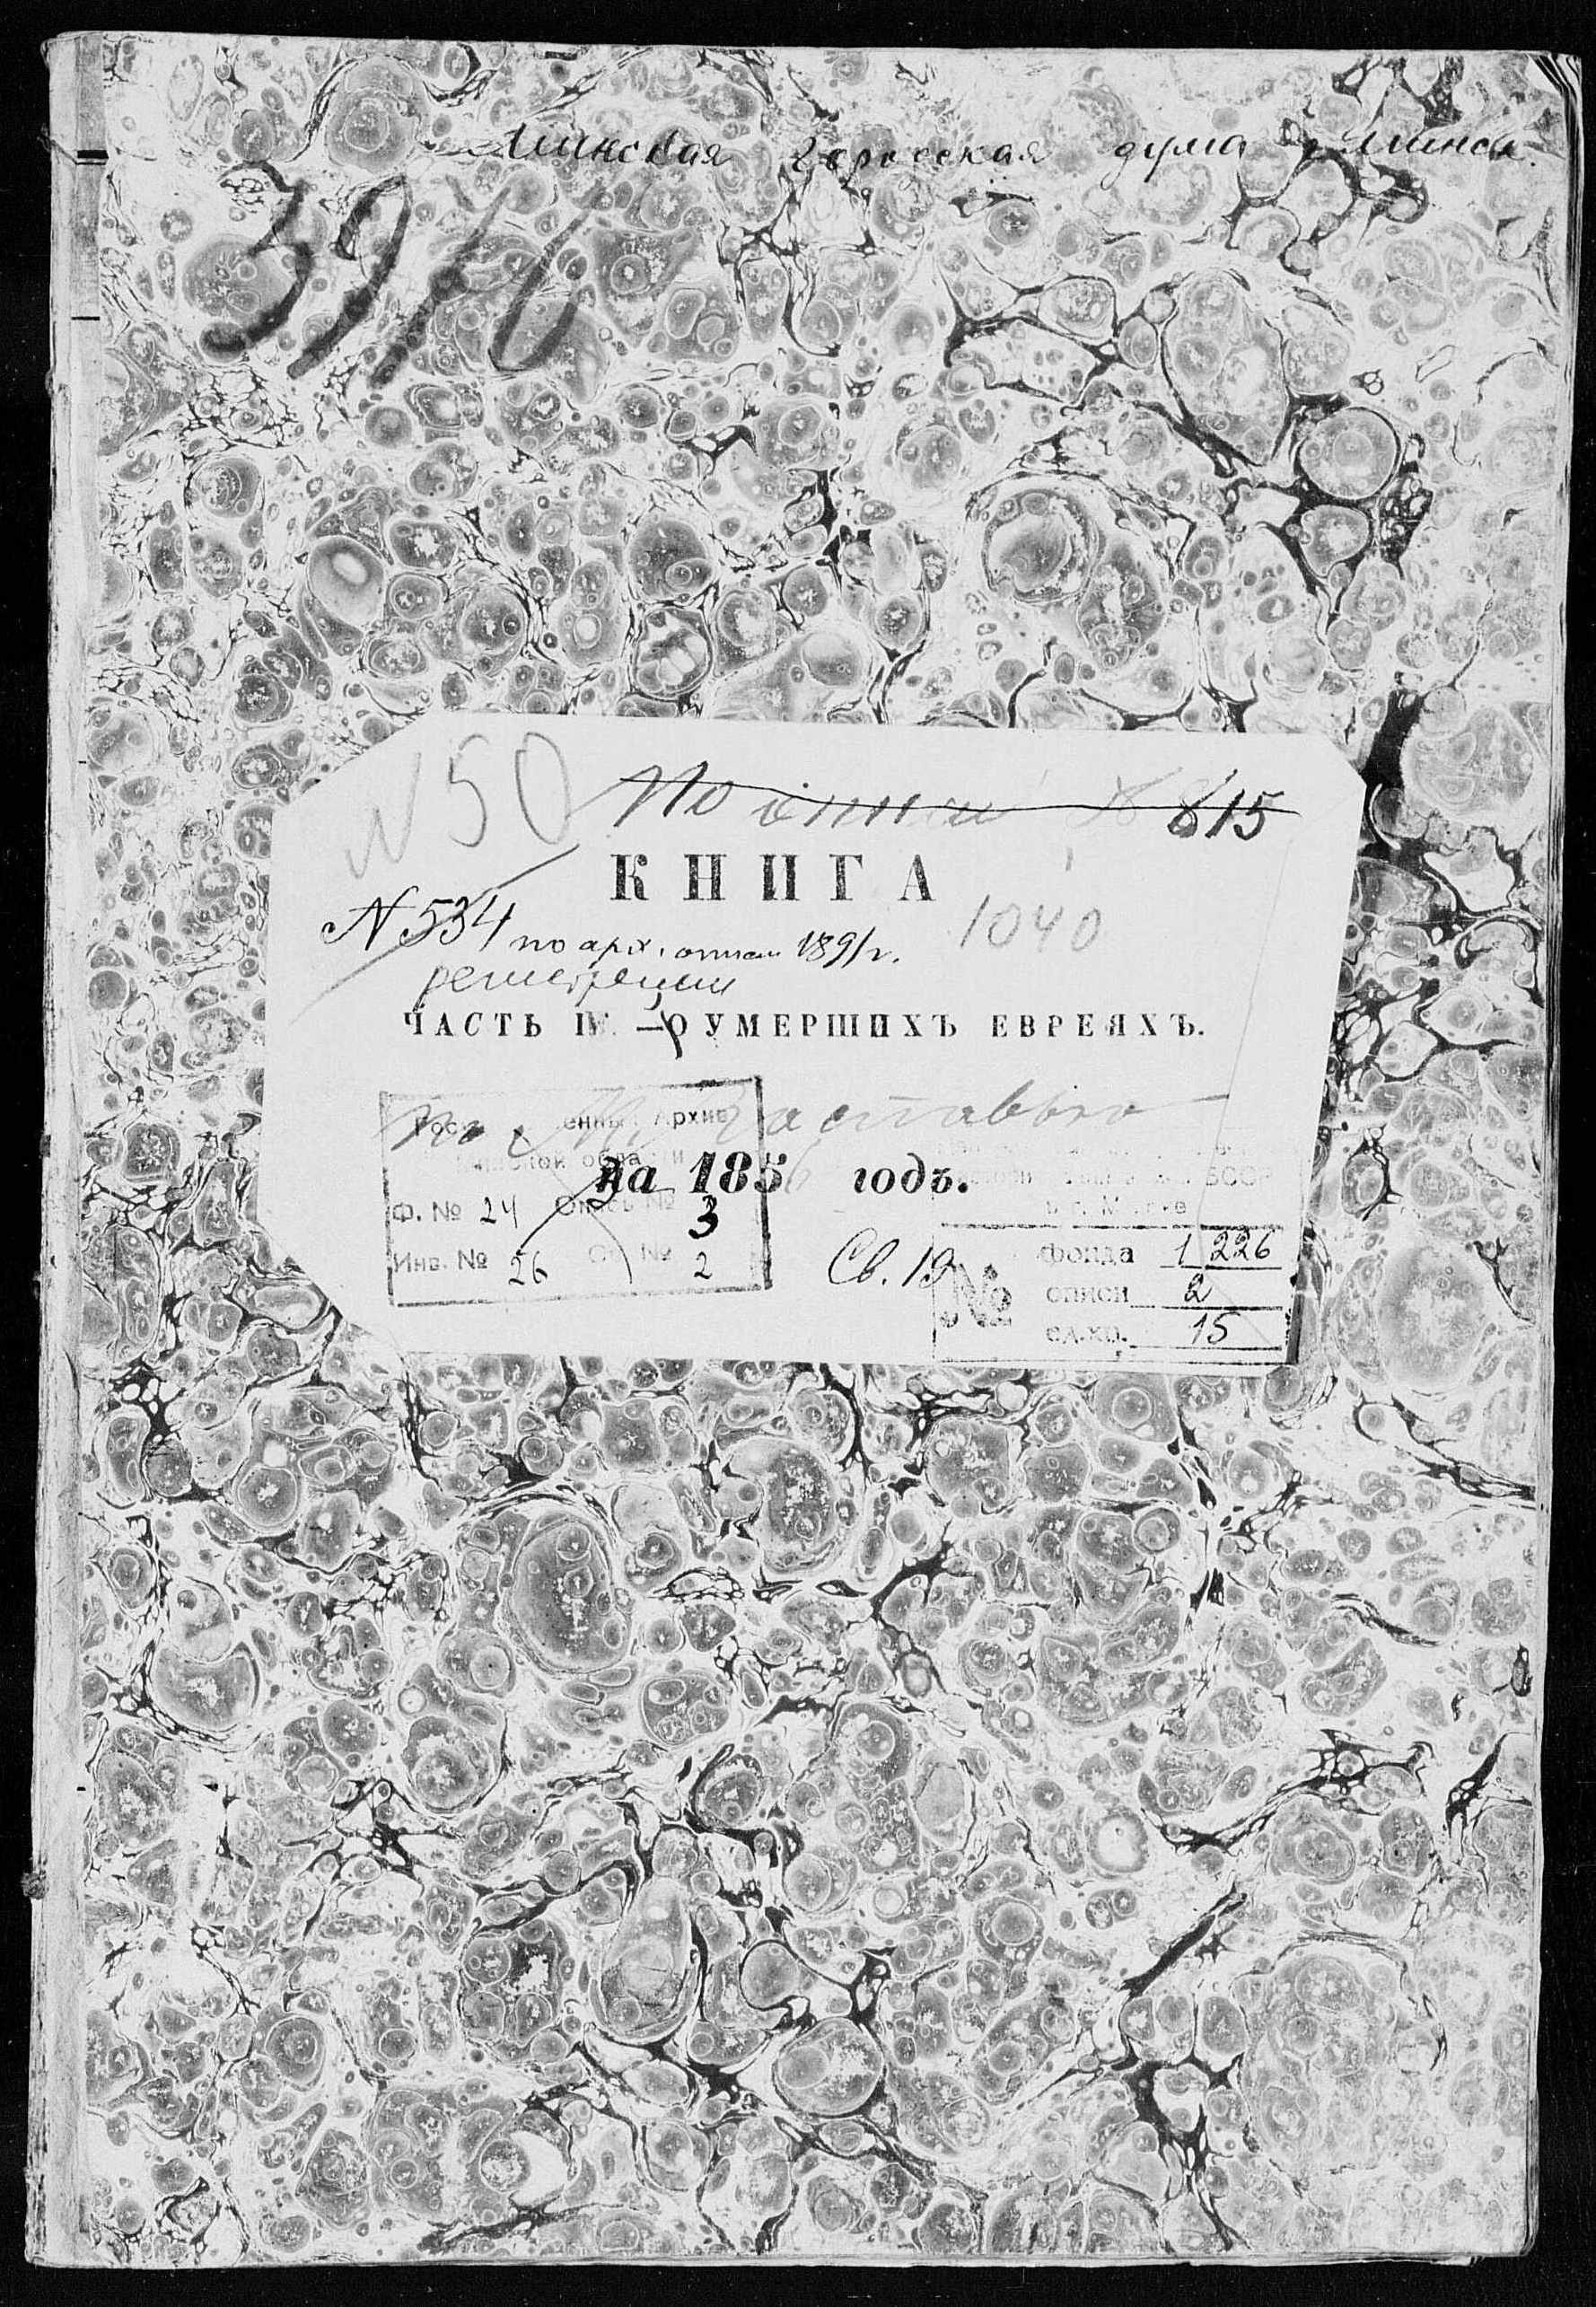 Минская городская дума г. Минск
3976
№ 50
По описи № 815
КНИГА
1040
№ 534 по арх. описи 1891 г.
регистрации
ЧАСТЬ IV. — О УМЕРШИХЪ ЕВРЕЯХЪ.
на 1856 годъ.
Архив
Минской области
Ф. № 24 Опись № 3
Инв. № 26 Св. № 2
Св. 19
БССР
в г. Минске
№ фонда 1226
описи 2
ед.хр. 15